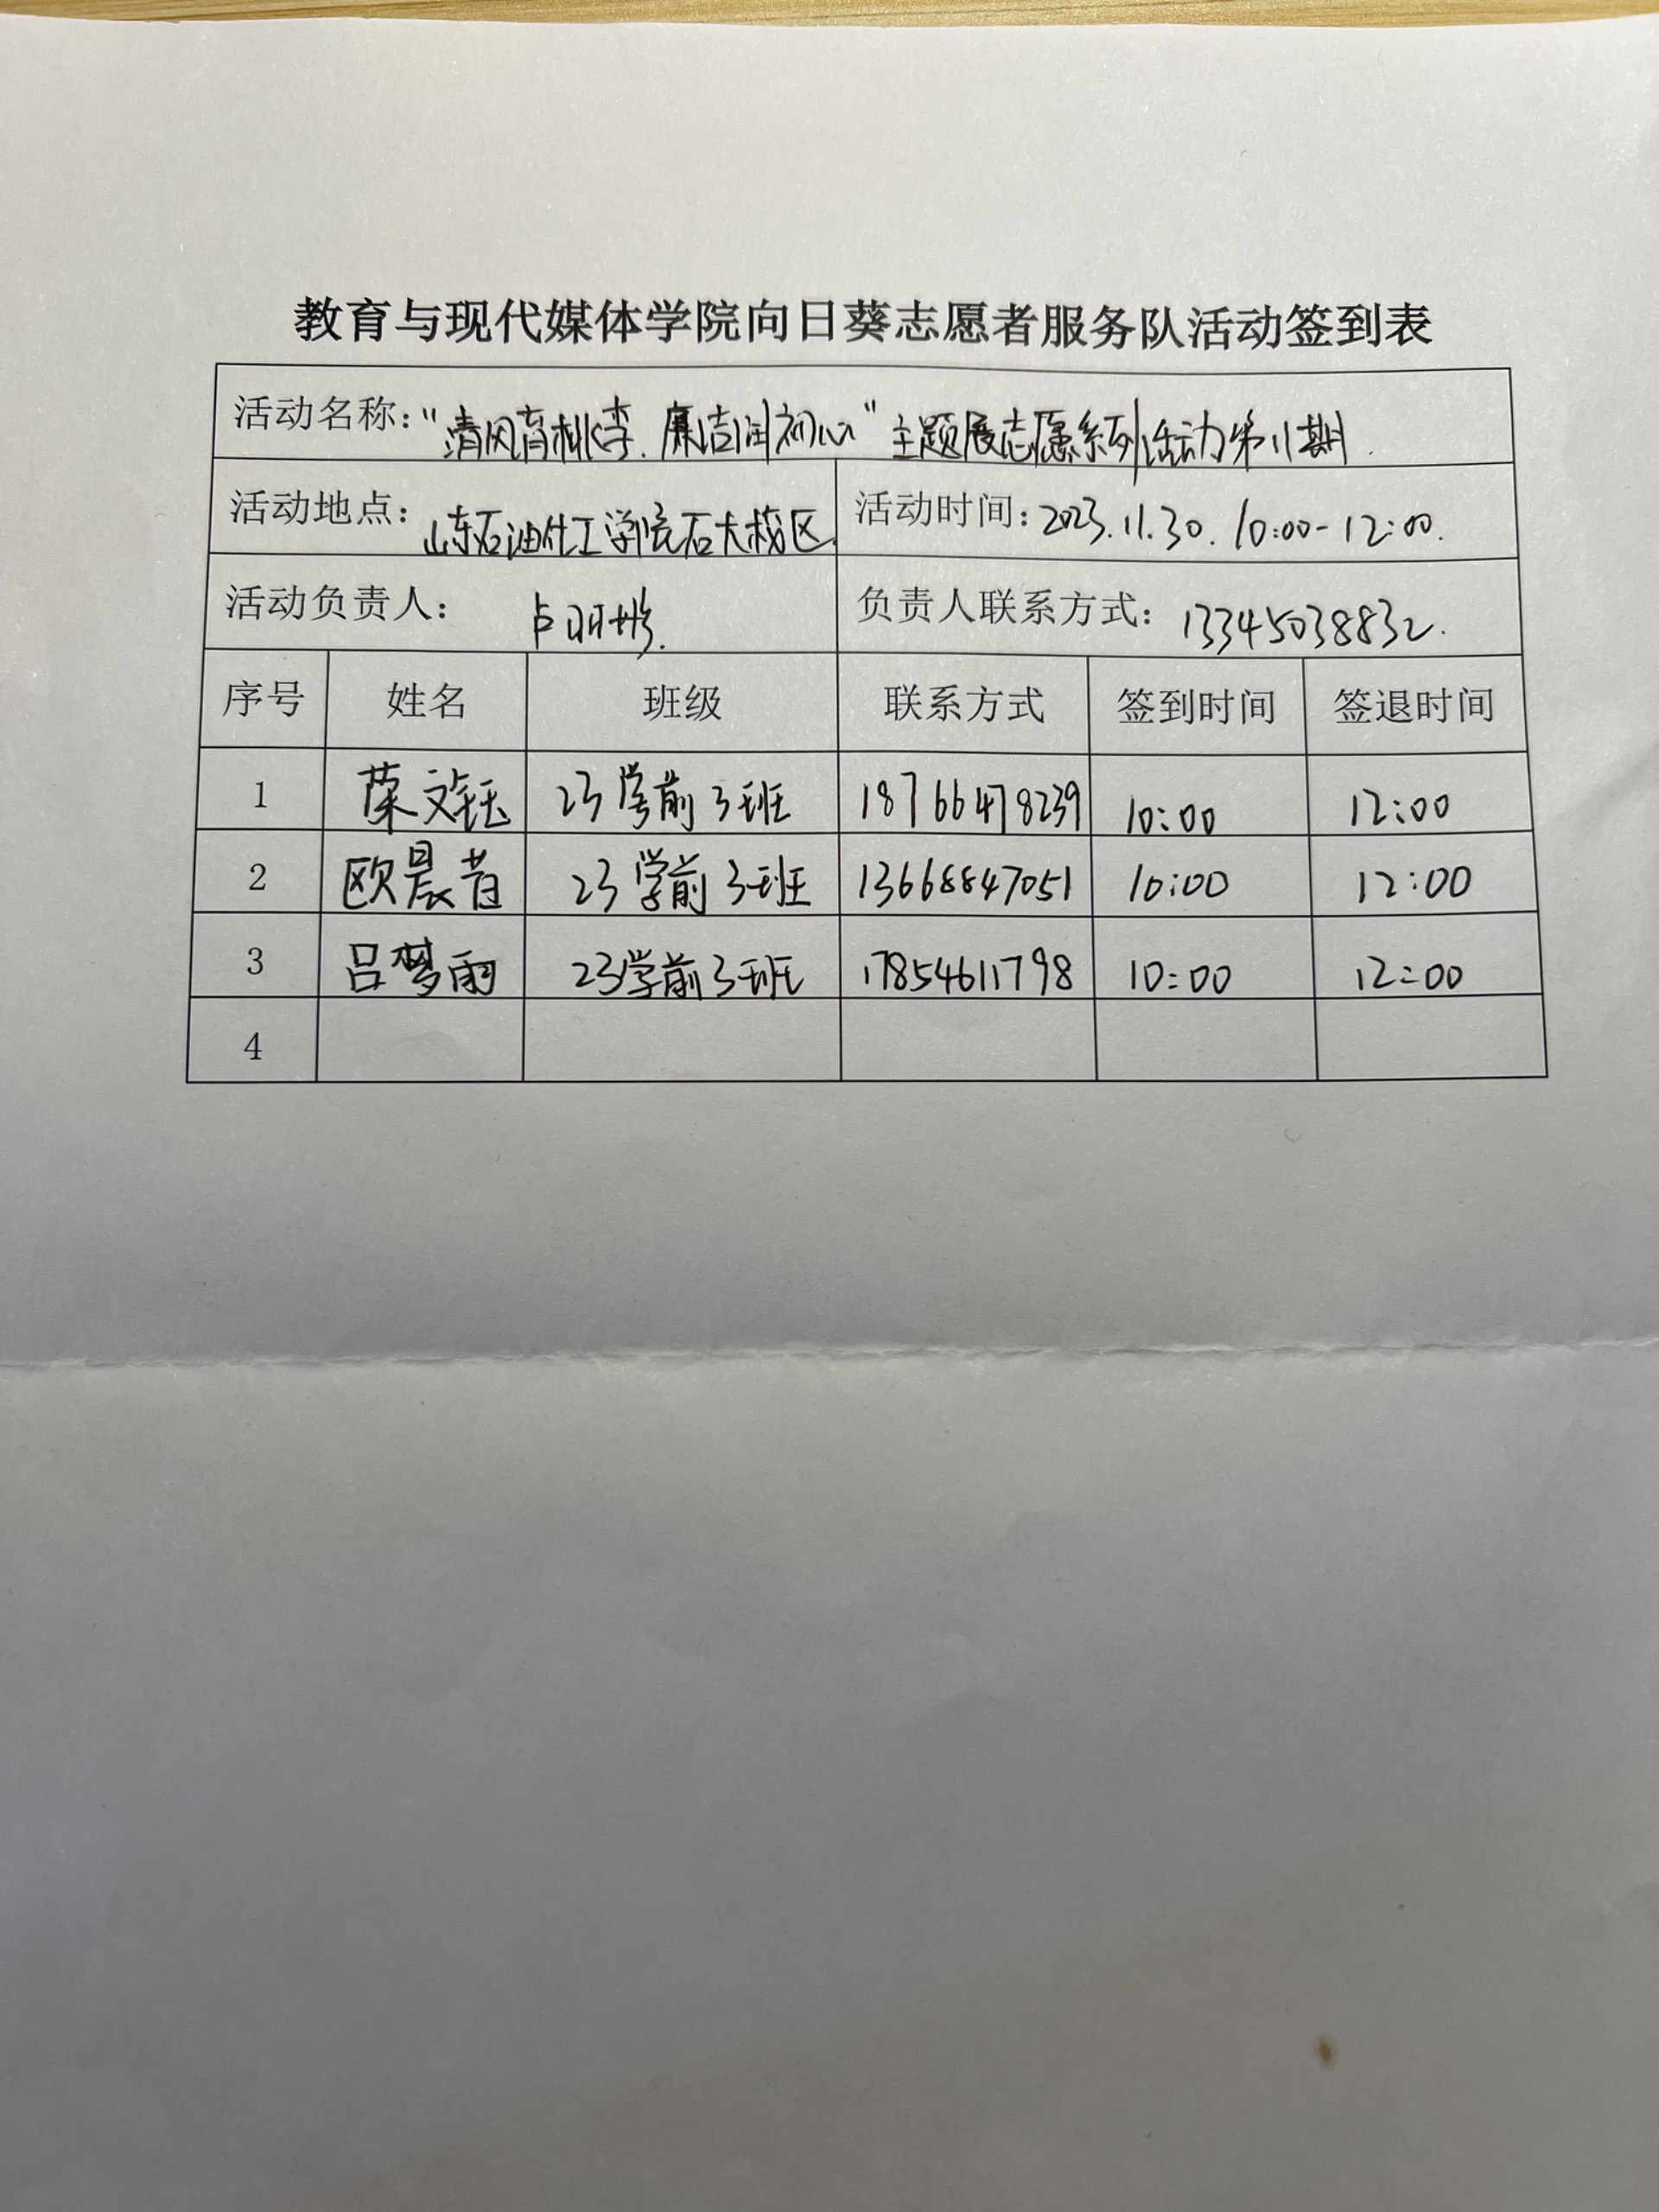 教育与现代媒体学院向日葵志愿者服务队活动签到表
活动名称：“清风育桃李.廉洁润初心”主题展志愿系列活动第11期.
活动地点：山东石油化工学院石大校区 活动时间：2023.11.30. 10:00-12:00.
活动负责人： 负责人联系方式：13345038832.
序号 姓名 班级 联系方式 签到时间 签退时间
1 荣文钰 23学前3班 18766478239 10:00 12:00
2 欧晨 23学前3班 13668847051 10:00 12:00
3 吕梦雨 23学前3班 17854611798 10:00 12:00
4